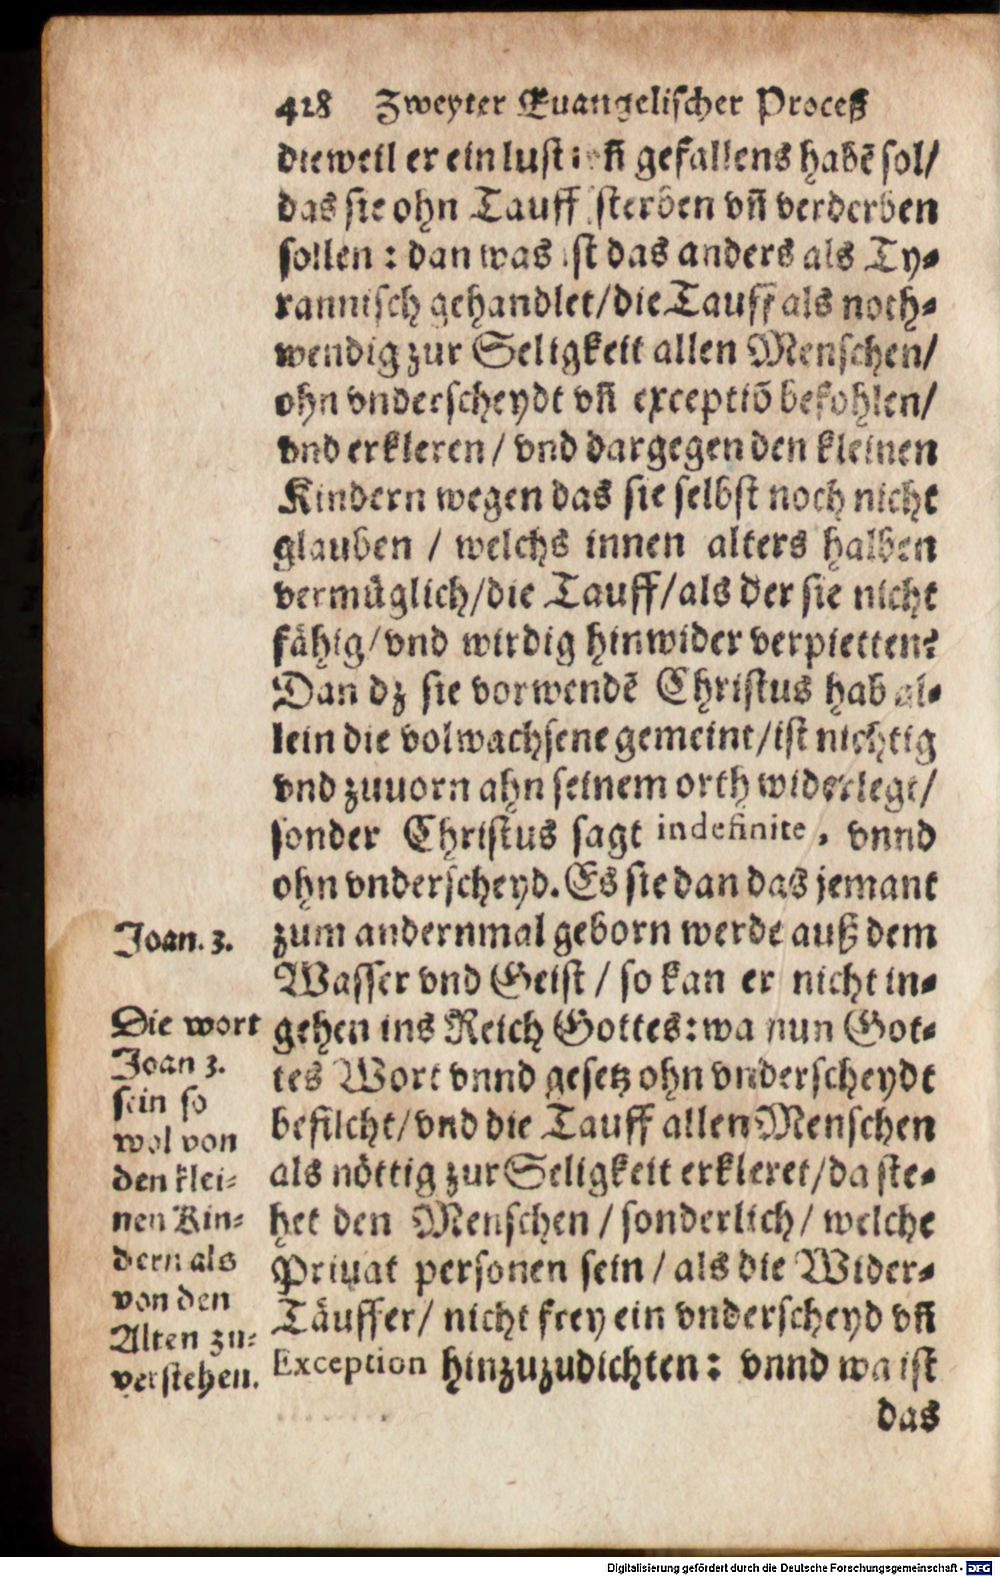 428 Zweyter Euangelischer Proceß
dieweil er ein lust vñ gefallens habē sol/
das sie ohn Tauff sterben vñ verderben
sollen : dan was ist das anders als Ty-
rannisch gehandlet/die Tauff als noth-
wendig zur Seligkeit allen Menschen/
ohn vnderscheydt vñ exceptiō befohlen/
vnd erkleren / vnd dargegen den kleinen
Kindern wegen das sie selbst noch nicht
glauben / welchs innen alters halben
vermüglich/die Tauff/als der sie nicht
fähig/vnd wirdig hinwider verpietten?
Dan dz sie vorwendē Christus hab al-
lein die volwachsene gemeint/ist nichtig
vnd zuuorn ahn seinem orth widerlegt/
sonder Christus sagt indefinite, vnnd
ohn vnderscheyd. Es sie dan das jemant
Joan. 3.
zum andernmal geborn werde auß dem
Wasser vnd Geist / so kan er nicht in-
gehen ins Reich Gottes: wa nun Got-
tes Wort vnnd gesetz ohn vnderscheydt
befilcht/vnd die Tauff allen Menschen
als nöttig zur Seligkeit erkleret/da ste-
het den Menschen / sonderlich/ welche
Priuat personen sein / als die Wider-
Täuffer/ nicht frey ein vnderscheyd vñ
Exception hinzuzudichten: vnnd wa ist
das
Die wort
Joan 3.
sein so
wol von
den klei-
nen Kin-
dern als
von den
Alten zu-
verstehen.
Digitalisierung gefördert durch die Deutsche Forschungsgemeinschaft - DFG